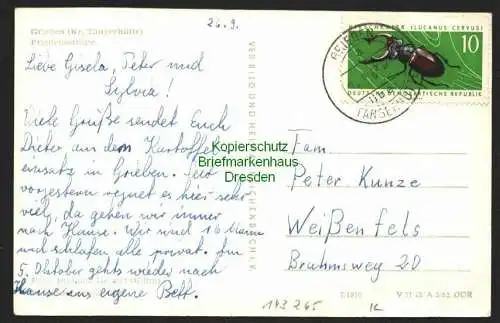 26.9.
Grieben (Kr. Tangerhütte)
Friedensstraße
Liebe Gisela, Peter und
Sylvia!
Viele Grüße sendet Euch
Dieter aus dem Kartoffel
einsatz in Grieben. Seit
vorgestern regnet es hier sehr
viel, da gehen wir immer
nach Hause. Wir sind 16 Mann
und schlafen alle privat. Am
5. Oktober gehts wieder nach
Hause ins eigene Bett.
VERLAG UND
GRIEBEN
TANGER
(LUCANUS CERVUS)
10
DEUTSCHE DEMOKRATISCHE REPUBLIK
Kopierschutz
Briefmarkenhaus
Dresden
Fam.
Peter Kunze
Weißenfels
Brahmsweg 20
143 265
DDR